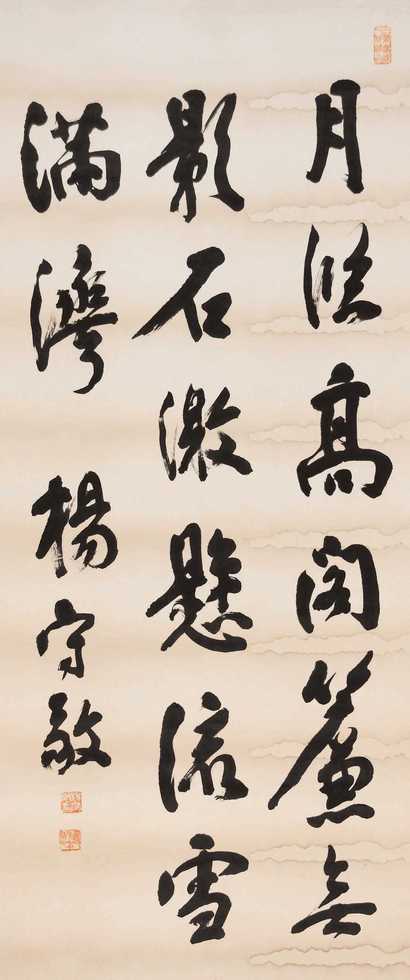 月臨高閣簾無
影石激懸流雪
滿灣 楊守敬